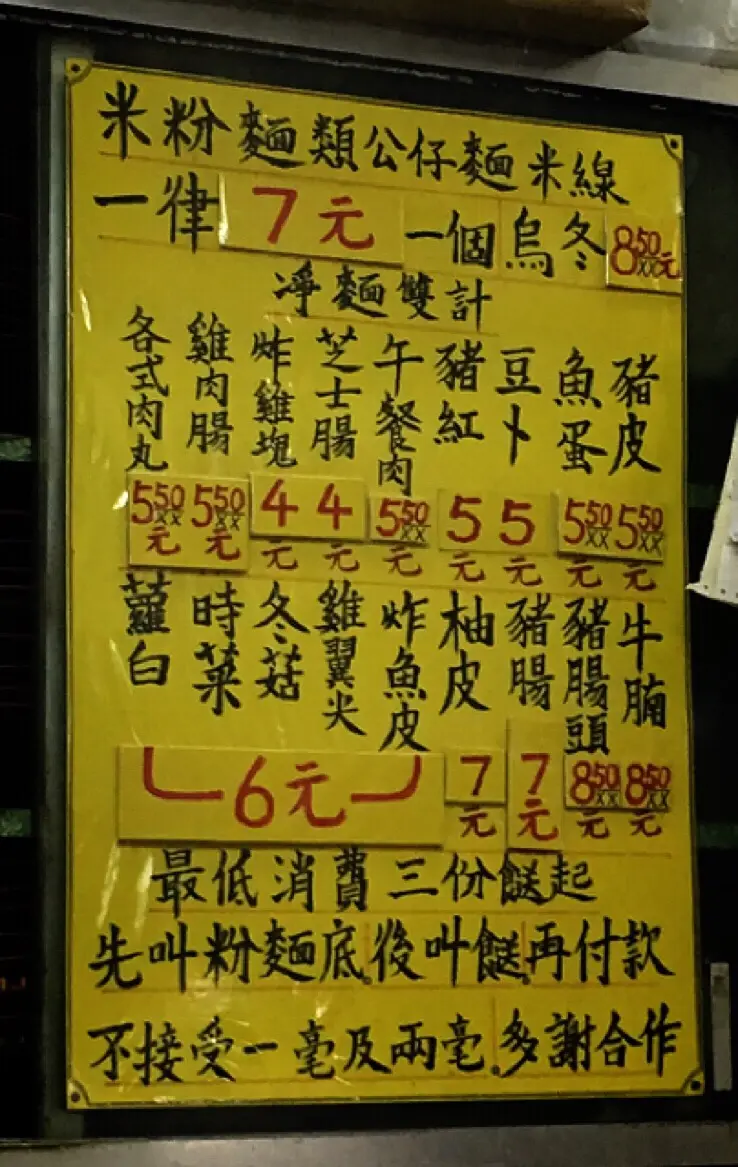 米粉麵類公仔麵米線
一律7元一個烏冬8.50元
凈麵雙計
各式肉丸
雞肉腸
炸雞塊
芝士腸
午餐肉
豬紅
豆卜
魚蛋
豬皮
5 50/XX元 5 50/XX元 4元 4元 5 50/XX元 5元 5元 5 50/XX元 5 50/XX元
蘿白
時菜
冬菇
雞翼尖
炸魚皮
柚皮
豬腸
豬腸頭
牛腩
6元 7元 7元 8 50/XX元 8 50/XX元
最低消費三份餸起
先叫粉麵底.後叫餸.再付款
不接受一毫及兩毫.多謝合作